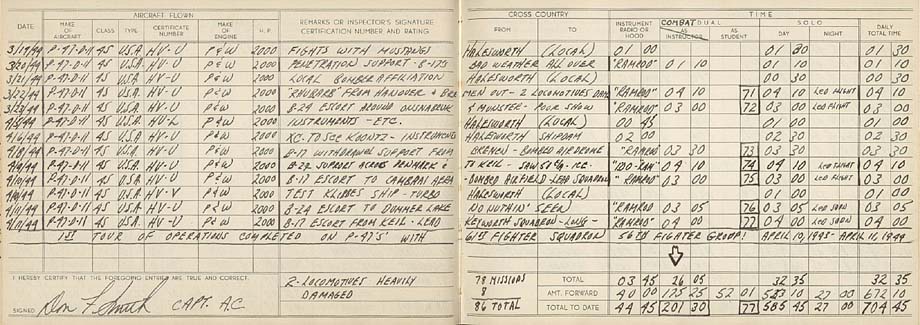 AIRCRAFT FLOWN
DATE MAKE OF AIRCRAFT CLASS TYPE CERTIFICATE NUMBER MAKE OF ENGINE H. P. REMARKS OR INSPECTOR'S SIGNATURE CERTIFICATION NUMBER AND RATING
3/19/44 P-47-D-11 45 U.S.A. HV-U P & W 2000 FIGHTS WITH MUSTANGS
3/20/44 P-47-D-11 45 U.S.A. HV-U P & W 2000 PENETRATION SUPPORT - B-17S
3/21/44 P-47-D-11 45 U.S.A. HV-U P & W 2000 LOCAL BOMBER AFFILIATION
3/22/44 P-47-D-11 45 U.S.A. HV-U P & W 2000 "RHUBARB" FROM HANOVER &
3/23/44 P-47-D-11 45 U.S.A. HV-U P & W 2000 B-24 ESCORT AROUND OSNABRUK
P-47-D-11 45 U.S.A. P & W 2000 INSTRUMENTS - ETC.
4/6/44 P-47-D-11 45 U.S.A. HV-U P & W 2000 XC. TO SEE KOONTZ -
P-47-D-11 45 U.S.A. HV-U P & W 2000 B-17 WITHDRAWAL SUPPORT FROM
4/9/44 P-47-D-11 45 U.S.A. HV-U P & W 2000 B-24 SUPPORT ACROSS DENMARK &
4/10/44 P-47-D-11 45 U.S.A. HV-U P & W 2000 B-17 ESCORT TO CAMBRAI AREA
4/10/44 P-47-D-11 45 U.S.A. HV-V P & W 2000 TEST SHIP - TURBO
4/11/44 P-47-D-11 45 U.S.A. HV-U P & W 2000 B-24 ESCORT TO DUMMER LAKE
P-47-D-11 45 U.S.A. HV-U P & W 2000 B-17 ESCORT FROM KEIL - LEAD
1ST TOUR OF OPERATIONS COMPLETED ON P-47'S WITH
I HEREBY CERTIFY THAT THE FOREGOING ENTRIES ARE TRUE AND CORRECT.
2-LOCOMOTIVES HEAVILY
DAMAGED
SIGNED Don CAPT. A.C.
CROSS COUNTRY TIME
FROM TO INSTRUMENT RADIO OR HOOD COMBAT DUAL AS INSTRUCTOR AS STUDENT SOLO DAY NIGHT DAILY TOTAL TIME
HALESWORTH (LOCAL) 01 00 01 30 01 30
BAD WEATHER ALL OVER "RAMROD" 01 10 01 10 01 10
HALESWORTH (LOCAL) 00 30 00 30
MEN OUT - 2 LOCOMOTIVES "RAMROD" 04 10 71 04 10 LED FLIGHT 04 10
& MUNSTER - POOR SHOW "RAMROD" 03 00 72 03 00 LED FLIGHT 03 00
HALESWORTH (LOCAL) 00 45 01 00 01 00
HALESWORTH SHIPDAM 02 00 02 30 02 30
BOMBED AIRDROME "RAMROD 03 30 73 03 30 03 30
TO KEIL - 04 10 74 04 10 LED FLIGHT 04 10
BOMBED AIRFIELD - LEAD SQUADRON "RAMROD" 03 00 75 03 00 LED FLIGHT 03 00
HALESWORTH (LOCAL) 01 00 01 00
NO NUTHIN' SEEN "RAMROD 03 05 76 03 05 LED SQDN 03 05
SQUADRON - LONG - "RAMROD" 04 00 77 04 00 LED SQDN 04 00
61ST FIGHTER SQUADRON 56TH FIGHTER GROUP! APRIL 10, 1943 - APRIL 11, 1944
78 MISSIONS TOTAL 03 45 26 05 32 35 32 35
8 AMT. FORWARD 40 00 175 25 52 01 10 27 00 672 10
86 TOTAL TOTAL TO DATE 44 45 201 30 77 585 45 27 00 704 45